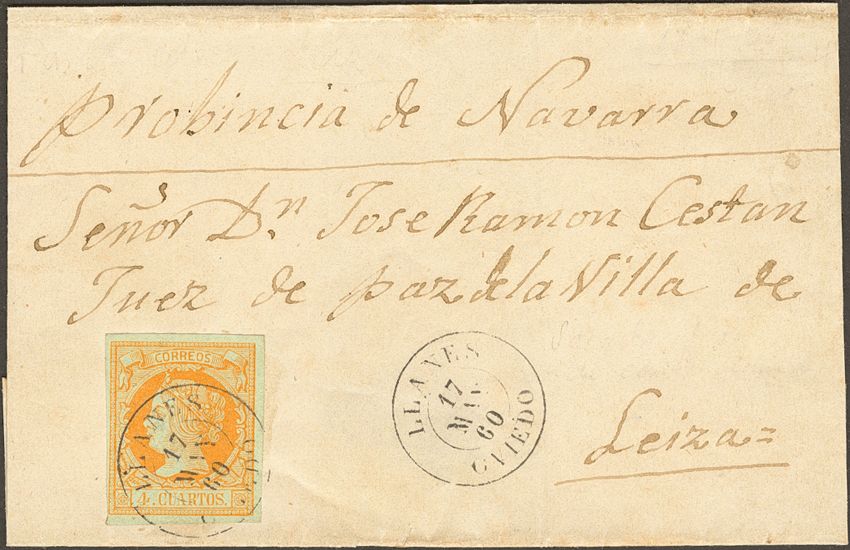 Probincia de Navarra
Señor Dn. Jose Ramon Cestan
Juez de paz de la Villa de
Leiza=
CORREOS
4 CUARTOS.
LLANES
17
60
LLANES
17
60
OVIEDO